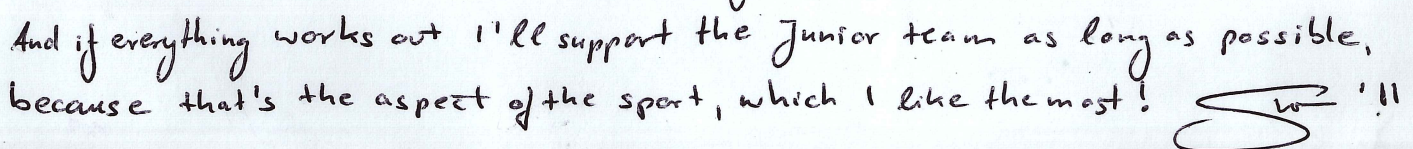 And if everything works out I'll support the Junior team as long as possible,
because that's the aspect of the sport, which I like the most! '11